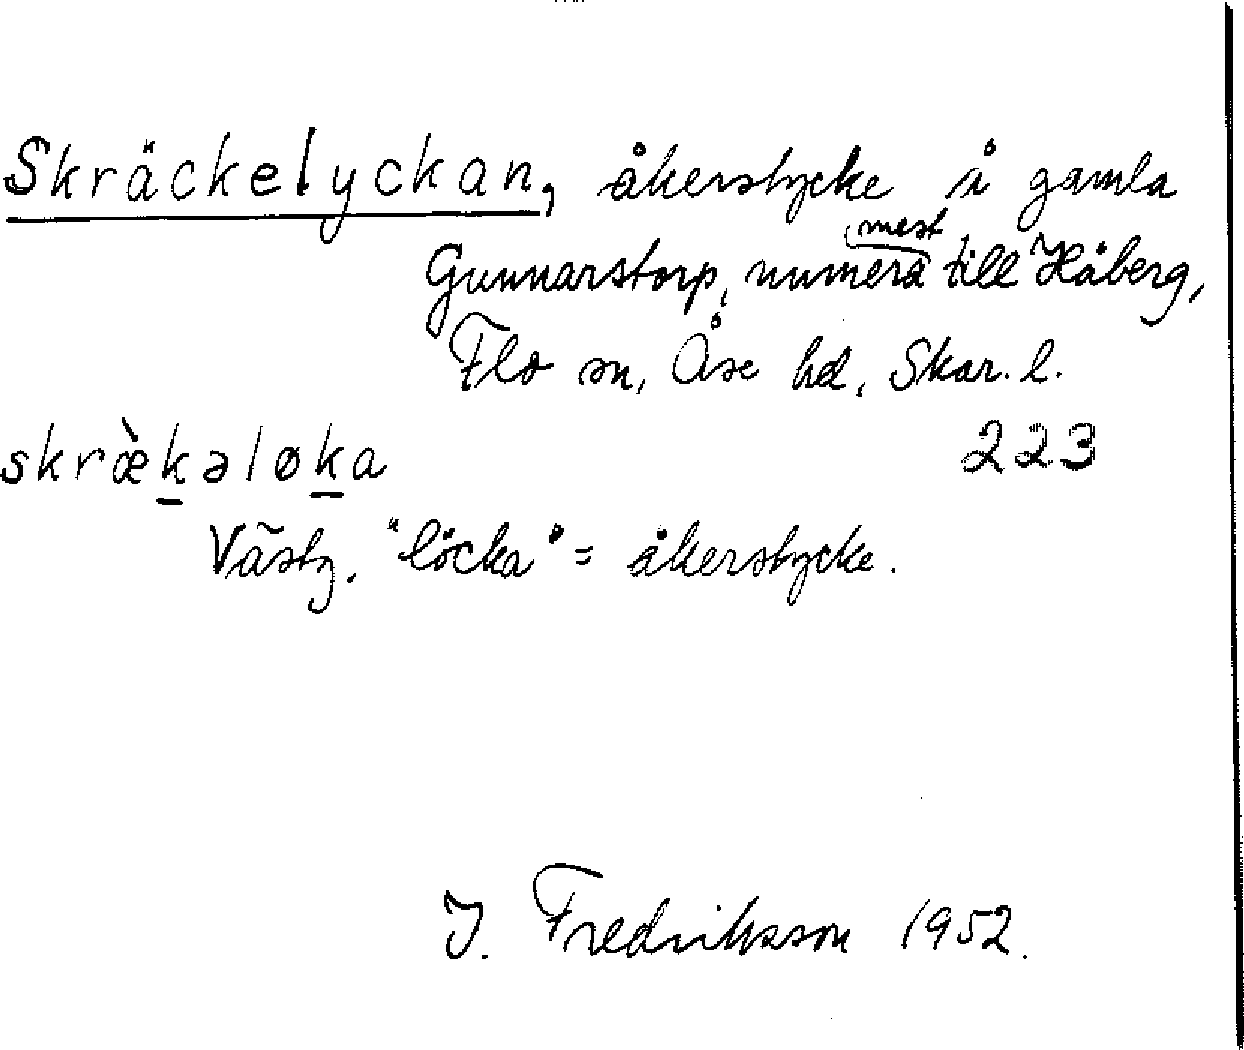 Skräckelyckan, åkerstycke i gamla
Gunnarstorp, numera mest till Håberg,
Flo sn, Åse hd, Skar. l.
skræ̀k̲əløk̲a 223
Västg. "löcka" = åkerstycke.
J. Fredriksson 1952.